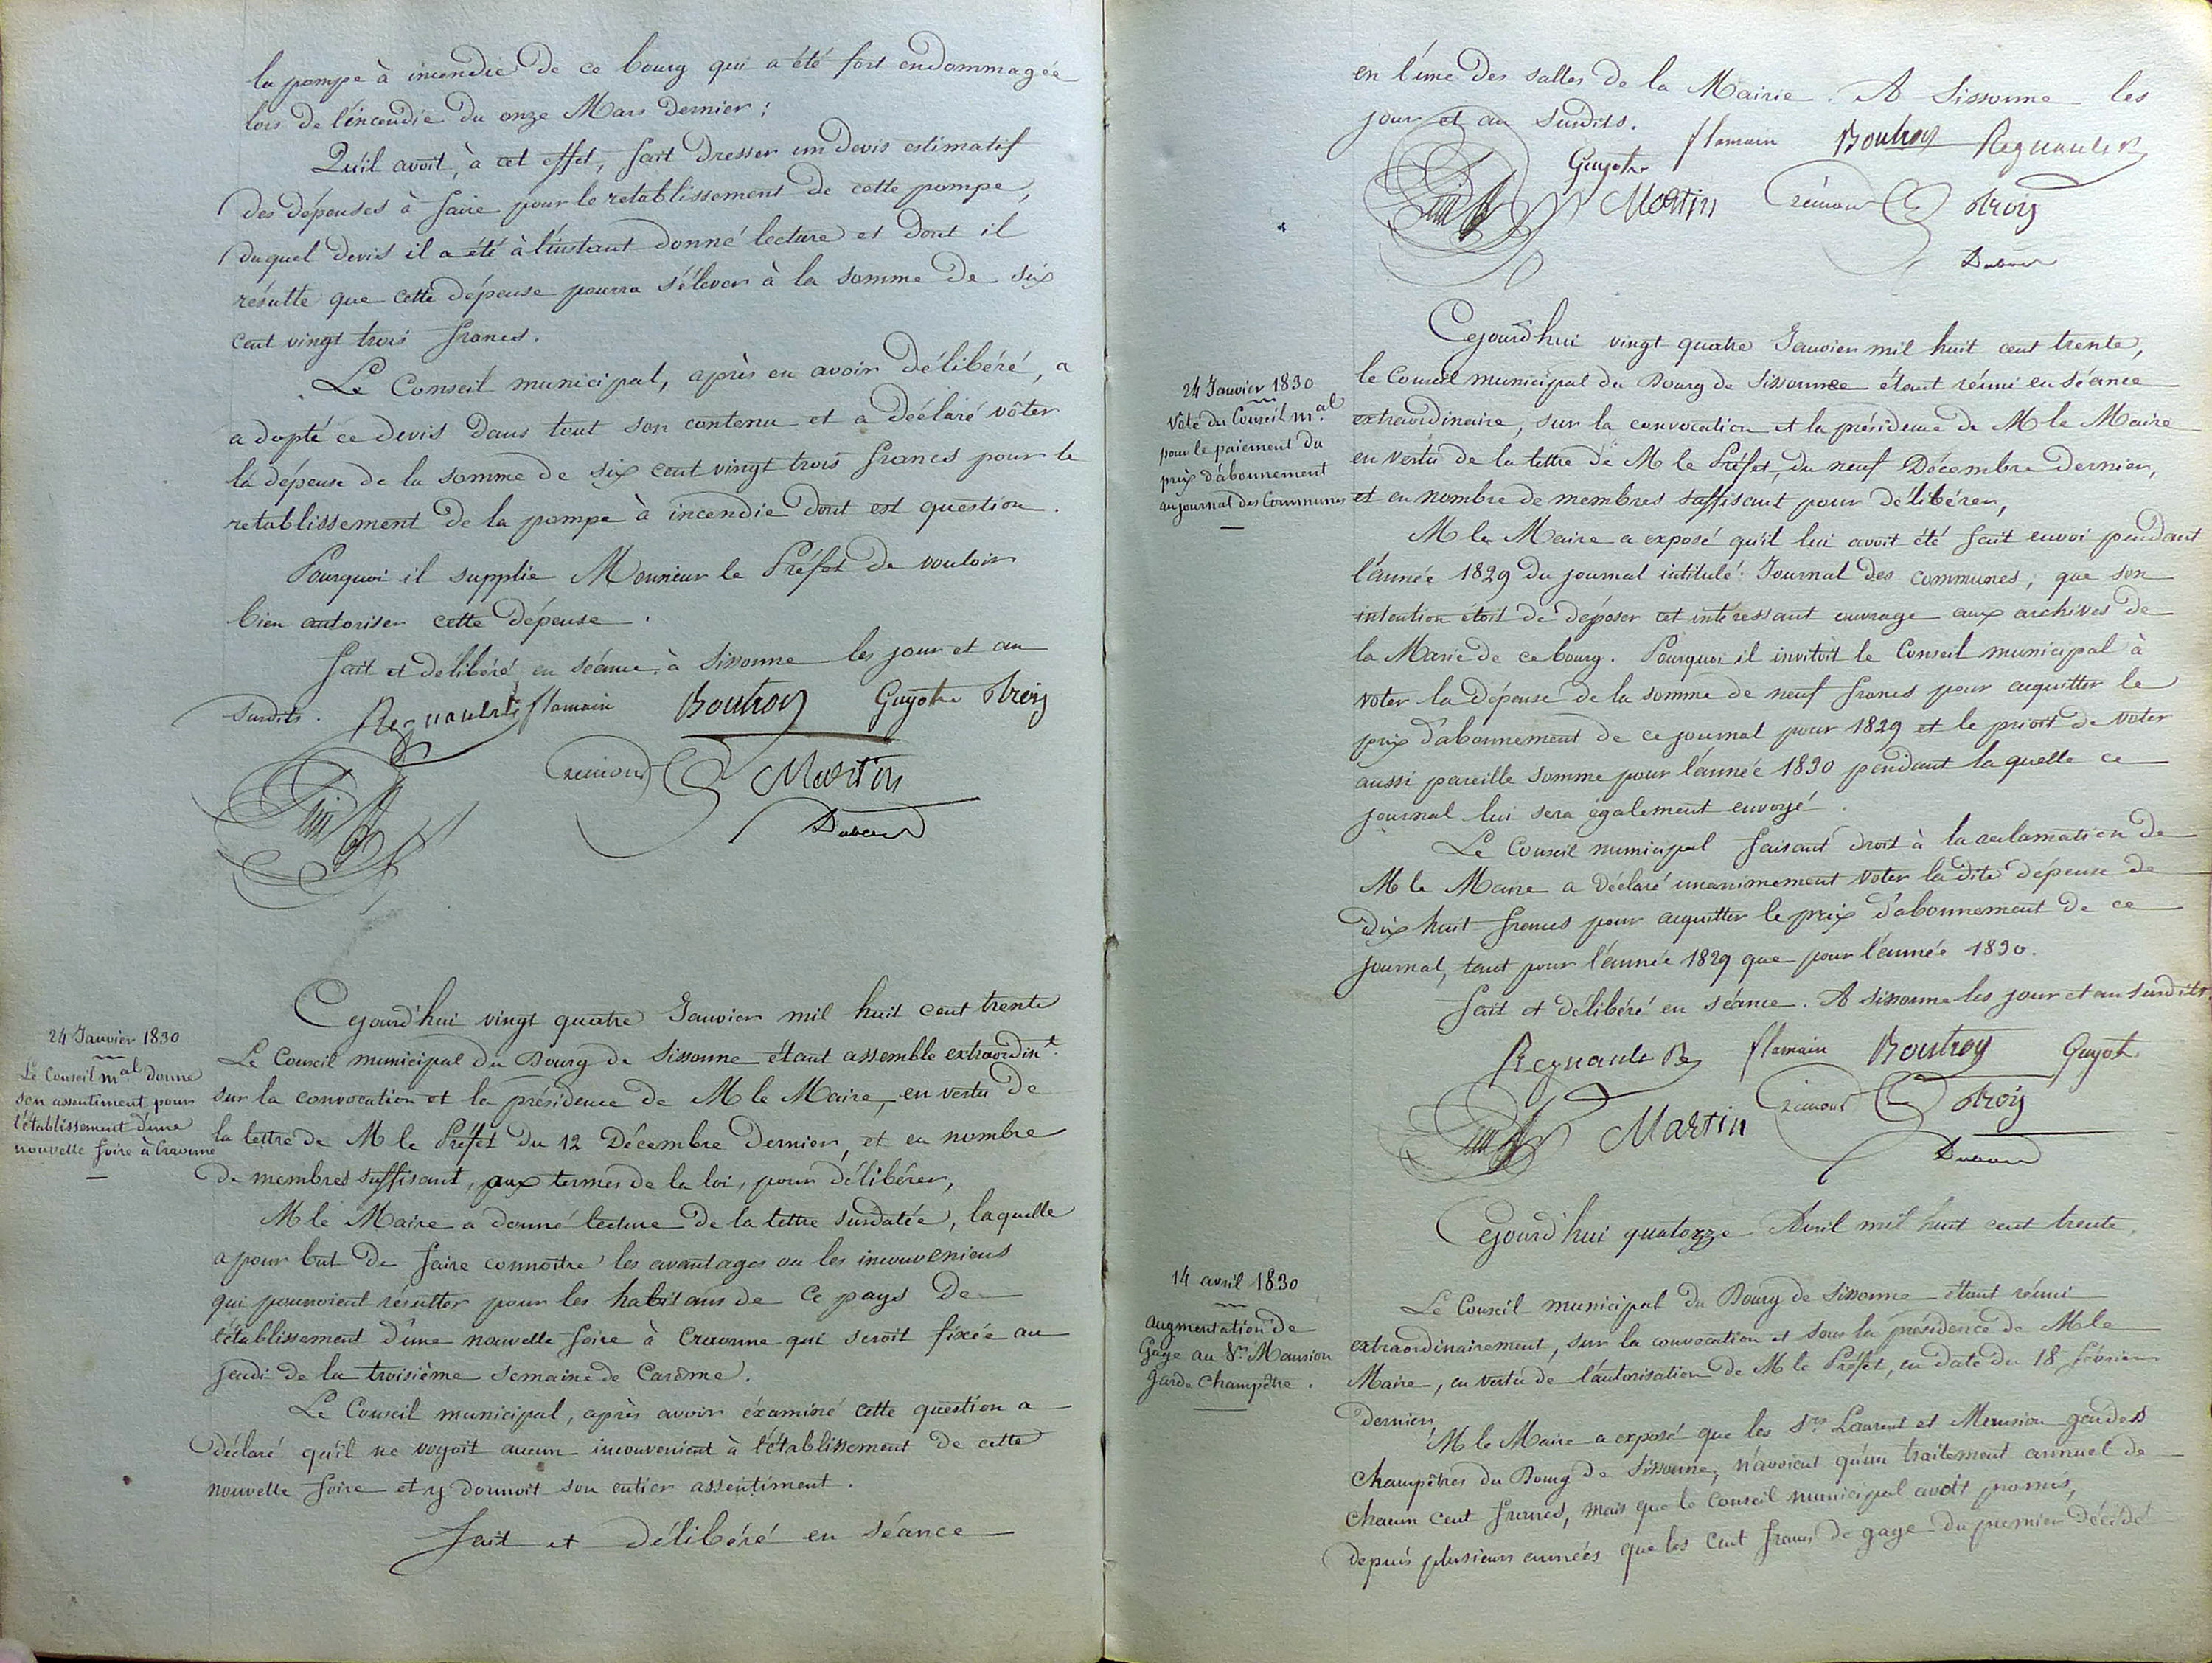 la pompe à incendie de ce bourg qui a été fort endommagée
lors de l'incendie du onze Mars dernier ;
Qu'il avoit, à cet effet, fait dresser un devis estimatif
des dépenses à faire pour le retablissement de cette pompe,
duquel devis il a été à l'instant donné lecture et dont il
résulte que cette dépense pourra s'élever à la somme de six
cent vingt trois francs.
Le Conseil municipal, après en avoir délibéré, a
adopté ce devis dans tout son contenu et a déclaré vôter
la dépense de la somme de six cent vingt trois francs pour le
retablissement de la pompe à incendie dont est question.
Pourquoi il supplie Monsieur le Préfet de vouloir
bien autoriser cette dépense.
fait et délibéré en séance à Sissonne les jour et an
susdits. Regnault flamain Boutroy Guyot
Martin
24 Janvier 1830
Le Conseil m.al donne
son assentiment pour
l'établissement d'une
nouvelle foire à Craonne
Cejourd'hui vingt quatre Janvier mil huit cent trente
Le Conseil municipal du Bourg de Sissonne étant assemblé extraordint.
sur la convocation et la présidence de M le Maire, en vertu de
la lettre de M le Préfet du 12 Décembre dernier, et en nombre
de membres suffisant, aux termes de la loi, pour délibérer,
M le Maire a donné lecture de la lettre susdatée, laquelle
a pour but de faire connoître les avantages ou les inconveniens
qui pourroient résulter pour les habitans de ce pays de
l'établissement d'une nouvelle foire à Craonne qui seroit fixée au
jeudi de la troisième semaine de Carême.
Le Conseil municipal, après avoir éxaminé cette question a
déclaré qu'il ne voyoit aucun inconvenient à l'établissement de cette
nouvelle foire et y donnoit son entier assentiment.
fait et délibéré en séance
en l'une des salles de la Mairie. A Sissonne les
jour et an susdits.
Guyot flamain Boutroy Regnault
Martin
24 Janvier 1830
Vote du Conseil m.al
pour le paiement du
prix d'abonnement
au journal des Communes
Cejourd'hui vingt quatre Janvier mil huit cent trente,
le Conseil municipal du Bourg de Sissonne étant réuni en séance
extraordinaire, sur la convocation et la présidence de M le Maire
en vertu de la lettre de M le Préfet, du neuf Décembre dernier,
et en nombre de membres suffisant pour délibérer,
M le Maire a exposé qu'il lui avoit été fait envoi pendant
l'année 1829 du journal intitulé : Journal des communes ; que son
intention étoit de déposer cet intéressant ouvrage aux archives de
la Marie de ce bourg. Pourquoi il invitoit le Conseil municipal à
voter la dépense de la somme de neuf francs pour acquitter le
prix d'abonnement de ce journal pour 1829 et le prioit de voter
aussi pareille somme pour l'année 1830 pendant laquelle ce
journal lui sera également envoyé.
Le Conseil municipal faisant droit à la reclamation de
M le Maire a déclaré unanimement voter ladite dépense de
dix huit francs pour acquitter le prix d'abonnement de ce
journal, tant pour l'année 1829 que pour l'année 1830.
fait et délibéré en séance. A Sissonne les jour et an susdits
Regnault flamain Boutroy Guyot
Martin
14 avril 1830
augmentation de
Gage au Sr. Mansion
garde Champêtre.
Cejourd'hui quatorze Avril mil huit cent trente,
Le Conseil municipal du Bourg de Sissonne étant réuni
extraordinairement, sur la convocation et sous la présidence de M le
Maire, en vertu de l'autorisation de M le Préfet, en date du 18 février
dernier,
M le Maire a exposé que les Srs. Laurent et Mansion gardes
champêtres du Bourg de Sissonne, n'avoient qu'un traitement annuel de
chacun cent francs, mais que le Conseil municipal avoit promis,
depuis plusieurs années que les cent francs de gage du premier décédé